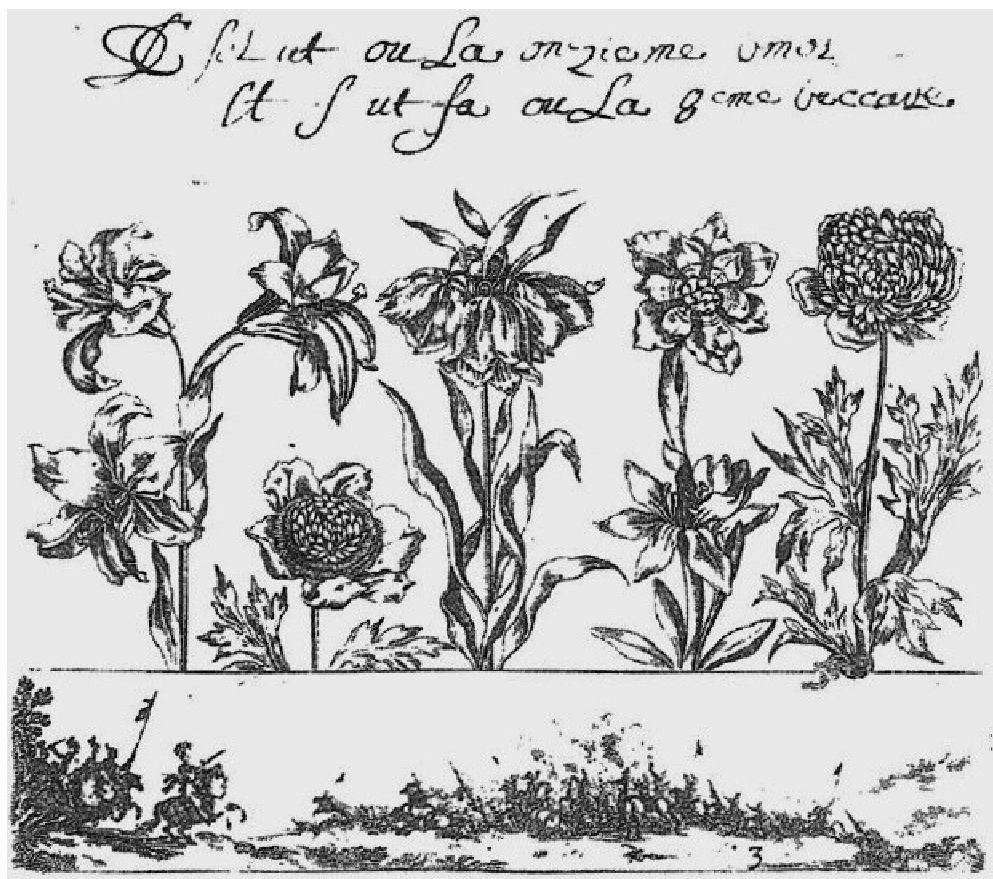 C sol ut ou La onzieme
et f ut fa ou La 8eme beccare.
3